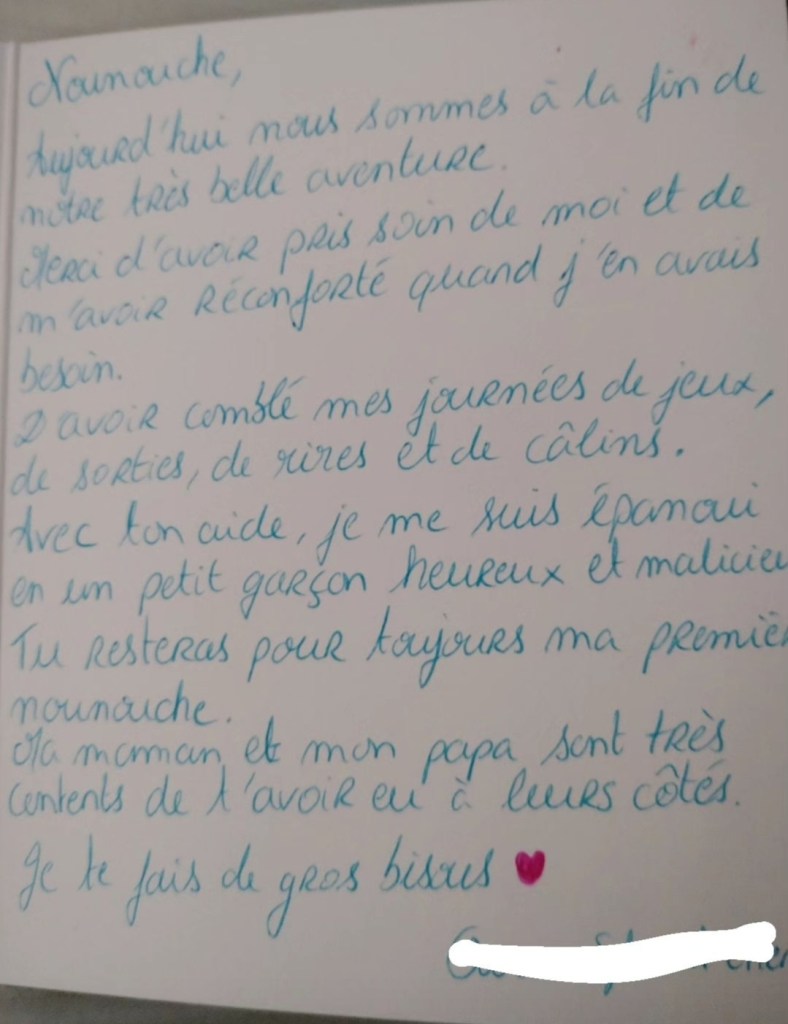 Nounouche,
Aujourd'hui nous sommes à la fin de
notre très belle aventure.
Merci d'avoir pris soin de moi et de
m'avoir réconforté quand j'en avais
besoin.
D'avoir comblé mes journées de jeux,
de sorties, de rires et de câlins.
Avec ton aide, je me suis épanoui
en un petit garçon heureux et malicieu
Tu resteras pour toujours ma premièr
nounouche.
Ma maman et mon papa sont très
contents de t'avoir eu à leurs côtés.
Je te fais de gros bisous